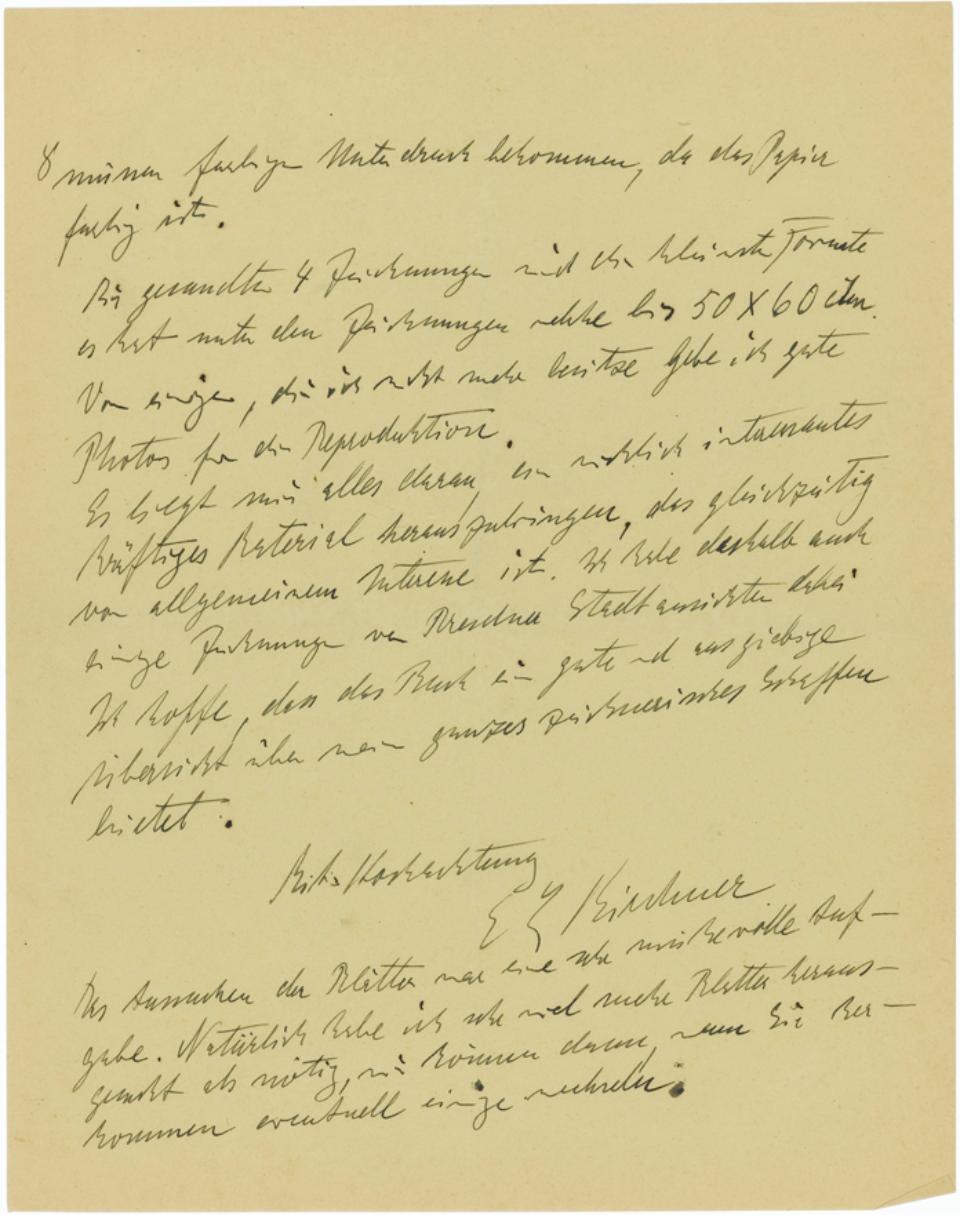 8 müssen farbigen Unterdruck bekommen, da das Papier
farbig ist.
Die gesandten 4 Zeichnungen sind die kleinsten Formate
es hat unter den Zeichnungen welche bis 50 X 60 ctm.
Von einigen, die ich nicht mehr besitze gebe ich gute
Photos für die Reproduktion.
Es liegt mir alles daran, ein wirklich interessantes
kräftiges Material herauszubringen, das gleichzeitig
von allgemeinem Interesse ist. Ich habe deshalb auch
einige Zeichnungen von Dresdner Stadtansichten dabei
Ich hoffe, dass das Buch ein gute und ausgiebige
Übersicht über mein ganzes zeichnerisches Schaffen
bietet.
Mit Hochachtung
E L Kirchner
Das Aussuchen der Blätter war eine sehr mühevolle Auf-
gabe. Natürlich habe ich sehr viel mehr Blätter heraus-
gesucht als nötig, wir können dann, wenn Sie her-
kommen eventuell einige wechseln.